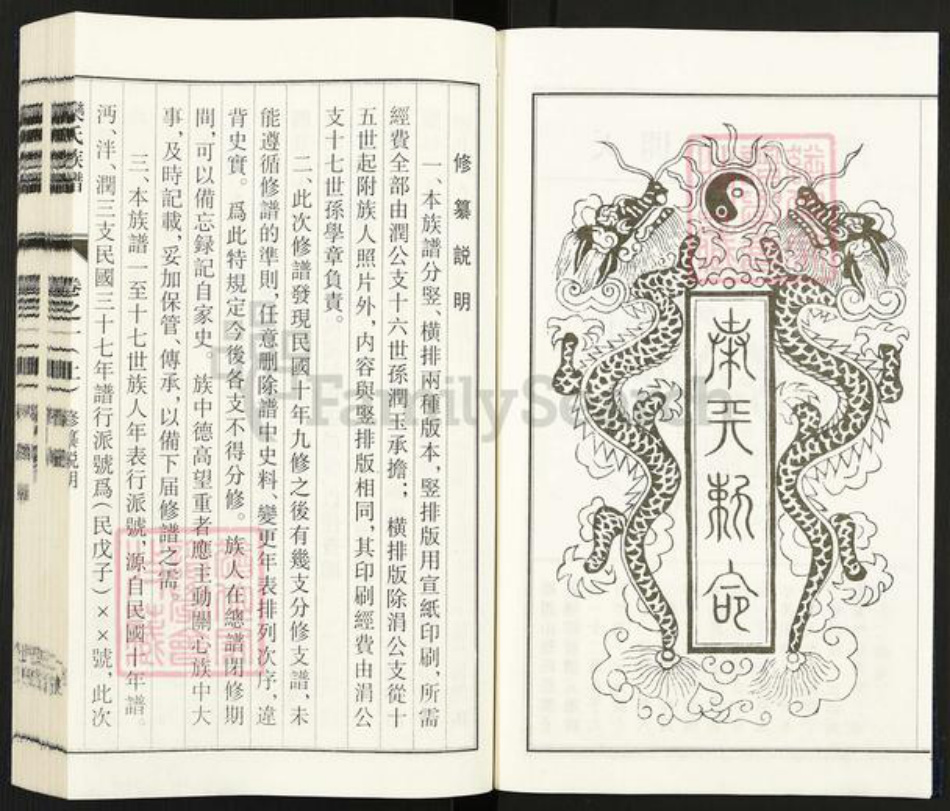 奉天敕命
修纂説明
一、本族譜分竪、橫排兩種版本，竪排版用宣紙印刷，所需
經費全部由潤公支十六世孫潤玉承擔；橫排版除涓公支從十
五世起附族人照片外，内容與竪排版相同，其印刷經費由涓公
支十七世孫學章負責。
二、此次修譜發現民國十年九修之後有幾支分修支譜、未
能遵循修譜的準則，任意删除譜中史料、變更年表排列次序，違
背史實。爲此特規定今後各支不得分修。族人在總譜閉修期
間，可以備忘録記自家史。族中德高望重者應主動關心族中大
事，及時記載，妥加保管、傳承，以備下届修譜之需。
三、本族譜一至十七世族人年表行派號，源自民國十年譜。
沔、泮、潤三支民國三十七年譜行派號爲（民戊子）××號，此次
氏族譜
卷之一（上）
修纂説明
FamilySearch